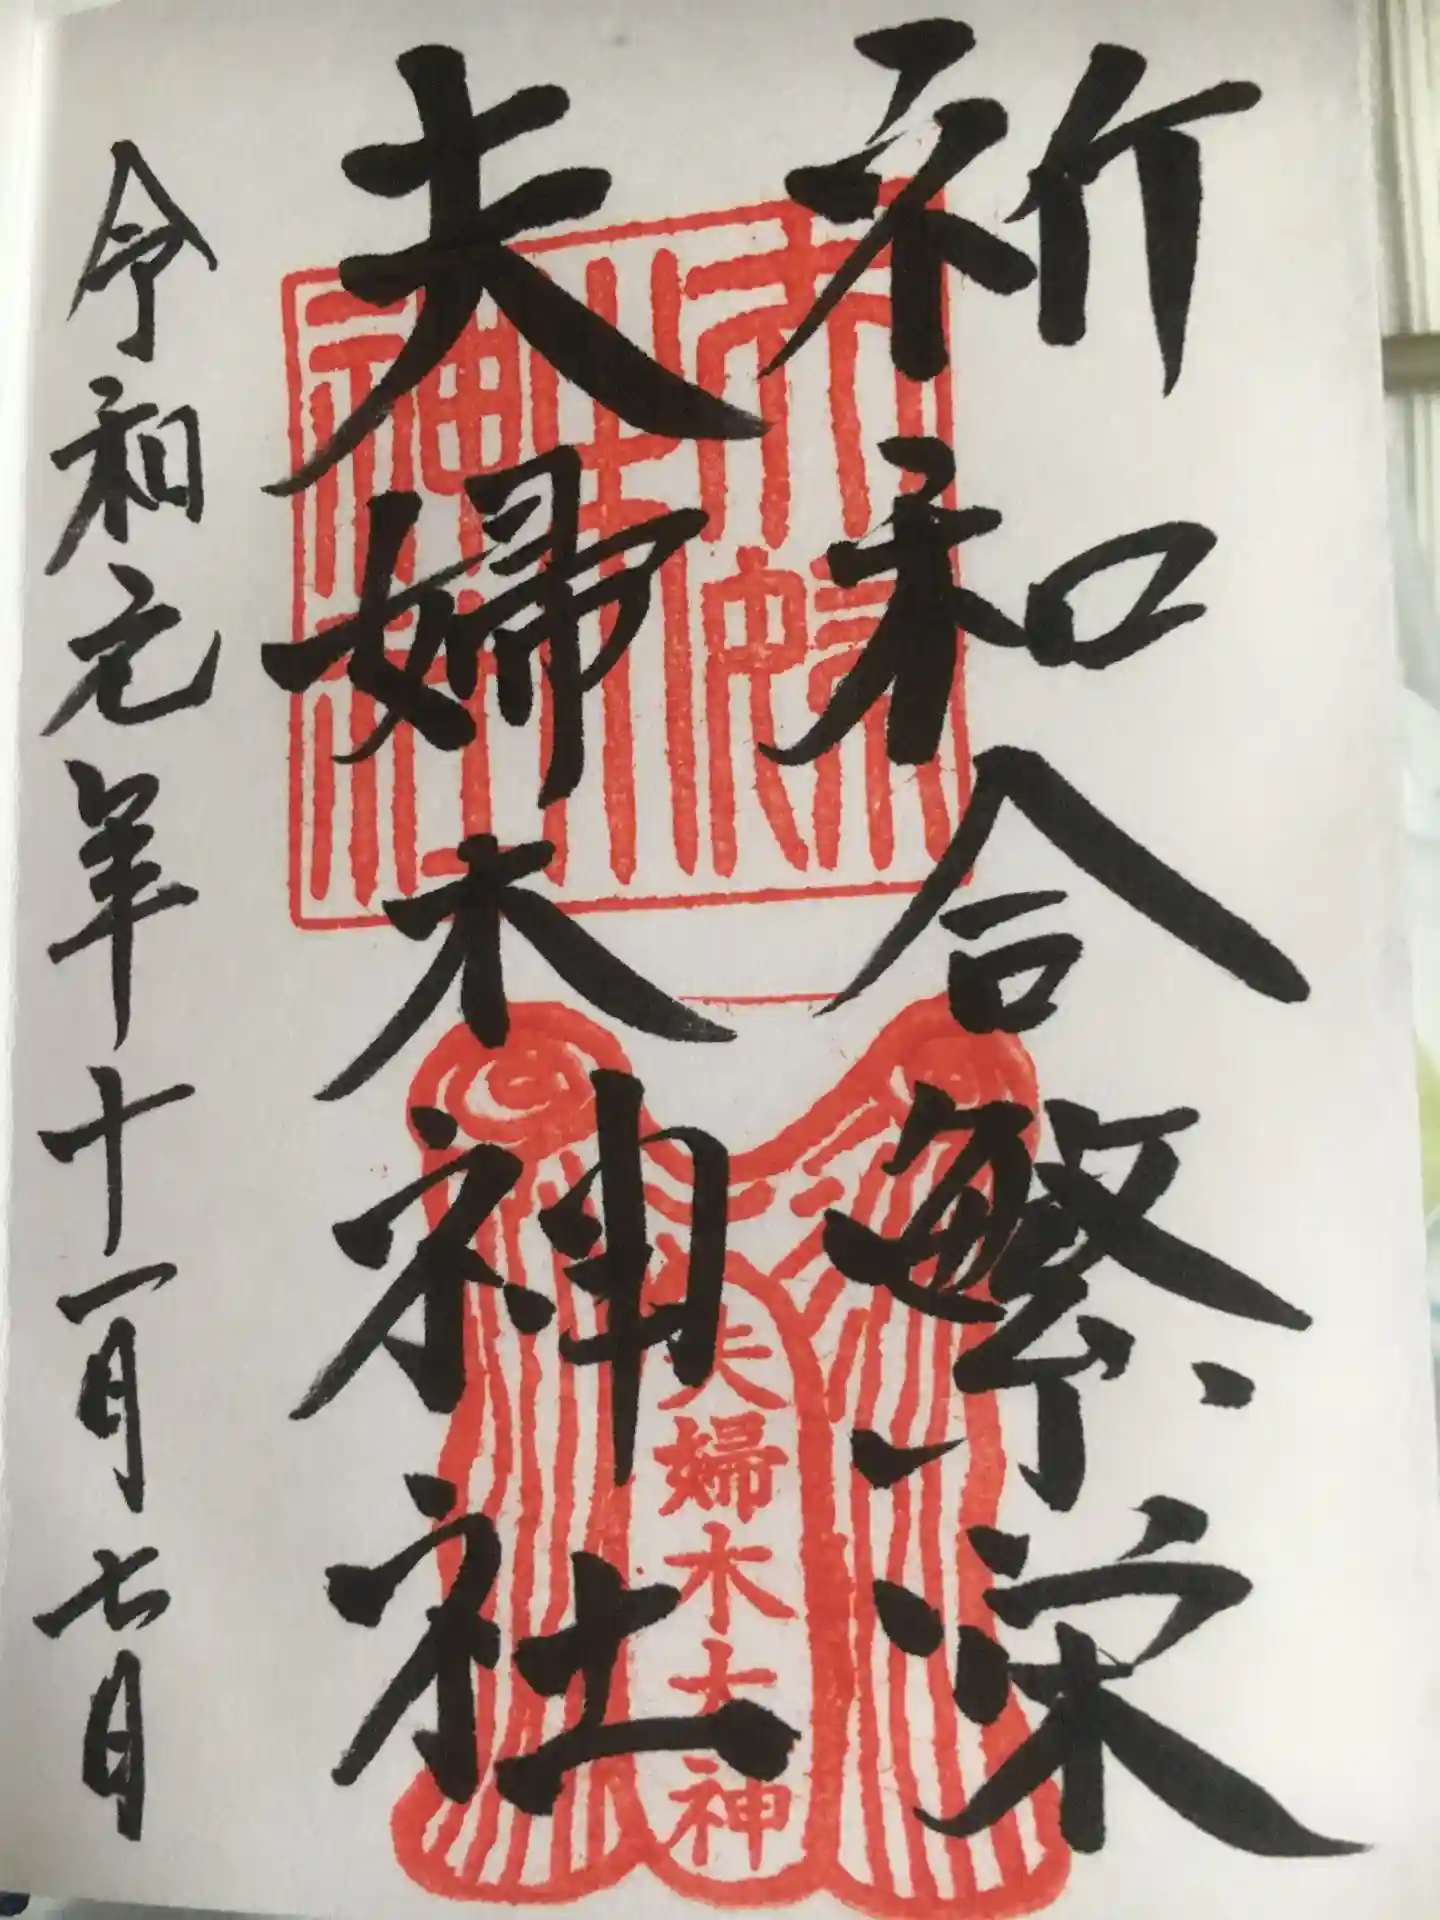 祈和合繁栄
夫婦木神社
令和元年十一月七日
夫婦木神社
夫婦木大神